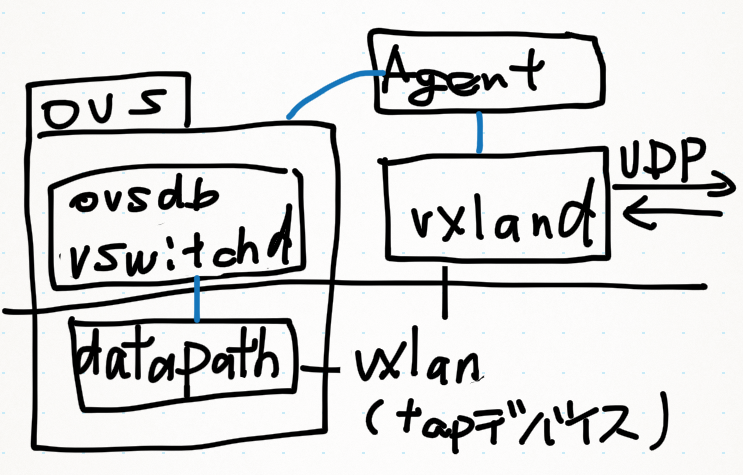 Agent
OVS
UDP
ovsdb
vswitchd
vxland
datapath
vxlan
(tapデバイス)